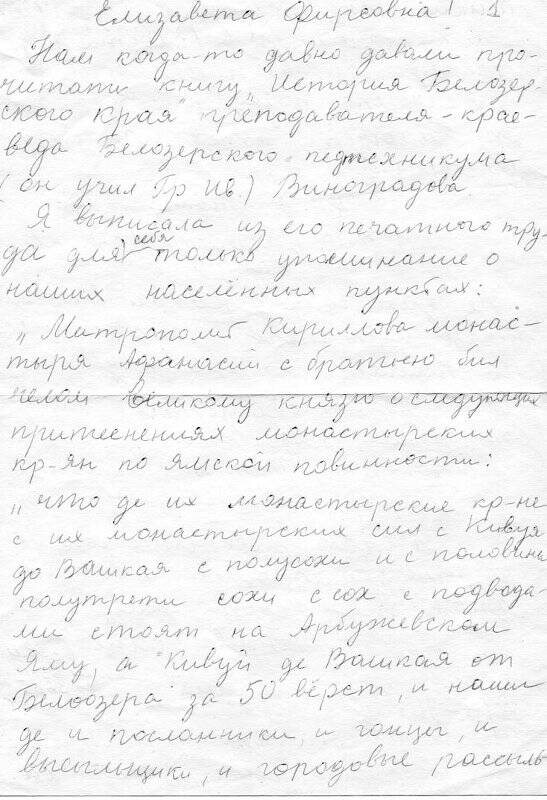 Елизавета Фирсовна! 1
Нам когда-то давно давали про-
читать книгу „История Белозер-
ского края" преподавателя-крае-
веда Белозерского педтехникума
(он учил Гр. Ив.) Виноградова.
Я выписала из его печатного тру-
да для себя только упоминание о
наших населённых пунктах:
„Митрополит Кириллова монас-
тыря Афанасий с братьею бил
челом Великому князю о следующих
притеснениях монастырских
кр-ян по Ямской повинности:
„что де их монастырские кр-не
с их монастырских сил с Кивуя
до Вашкая с полусохи и с половины
полутрети сохи с сох с подвода-
ми стоят на Арбужевском
Яму, а Кивуй де Вашкая от
Белоозера за 50 вёрст, и наши
де и посланники, и гонцы, и
высыльщики, и городовые рассыль-